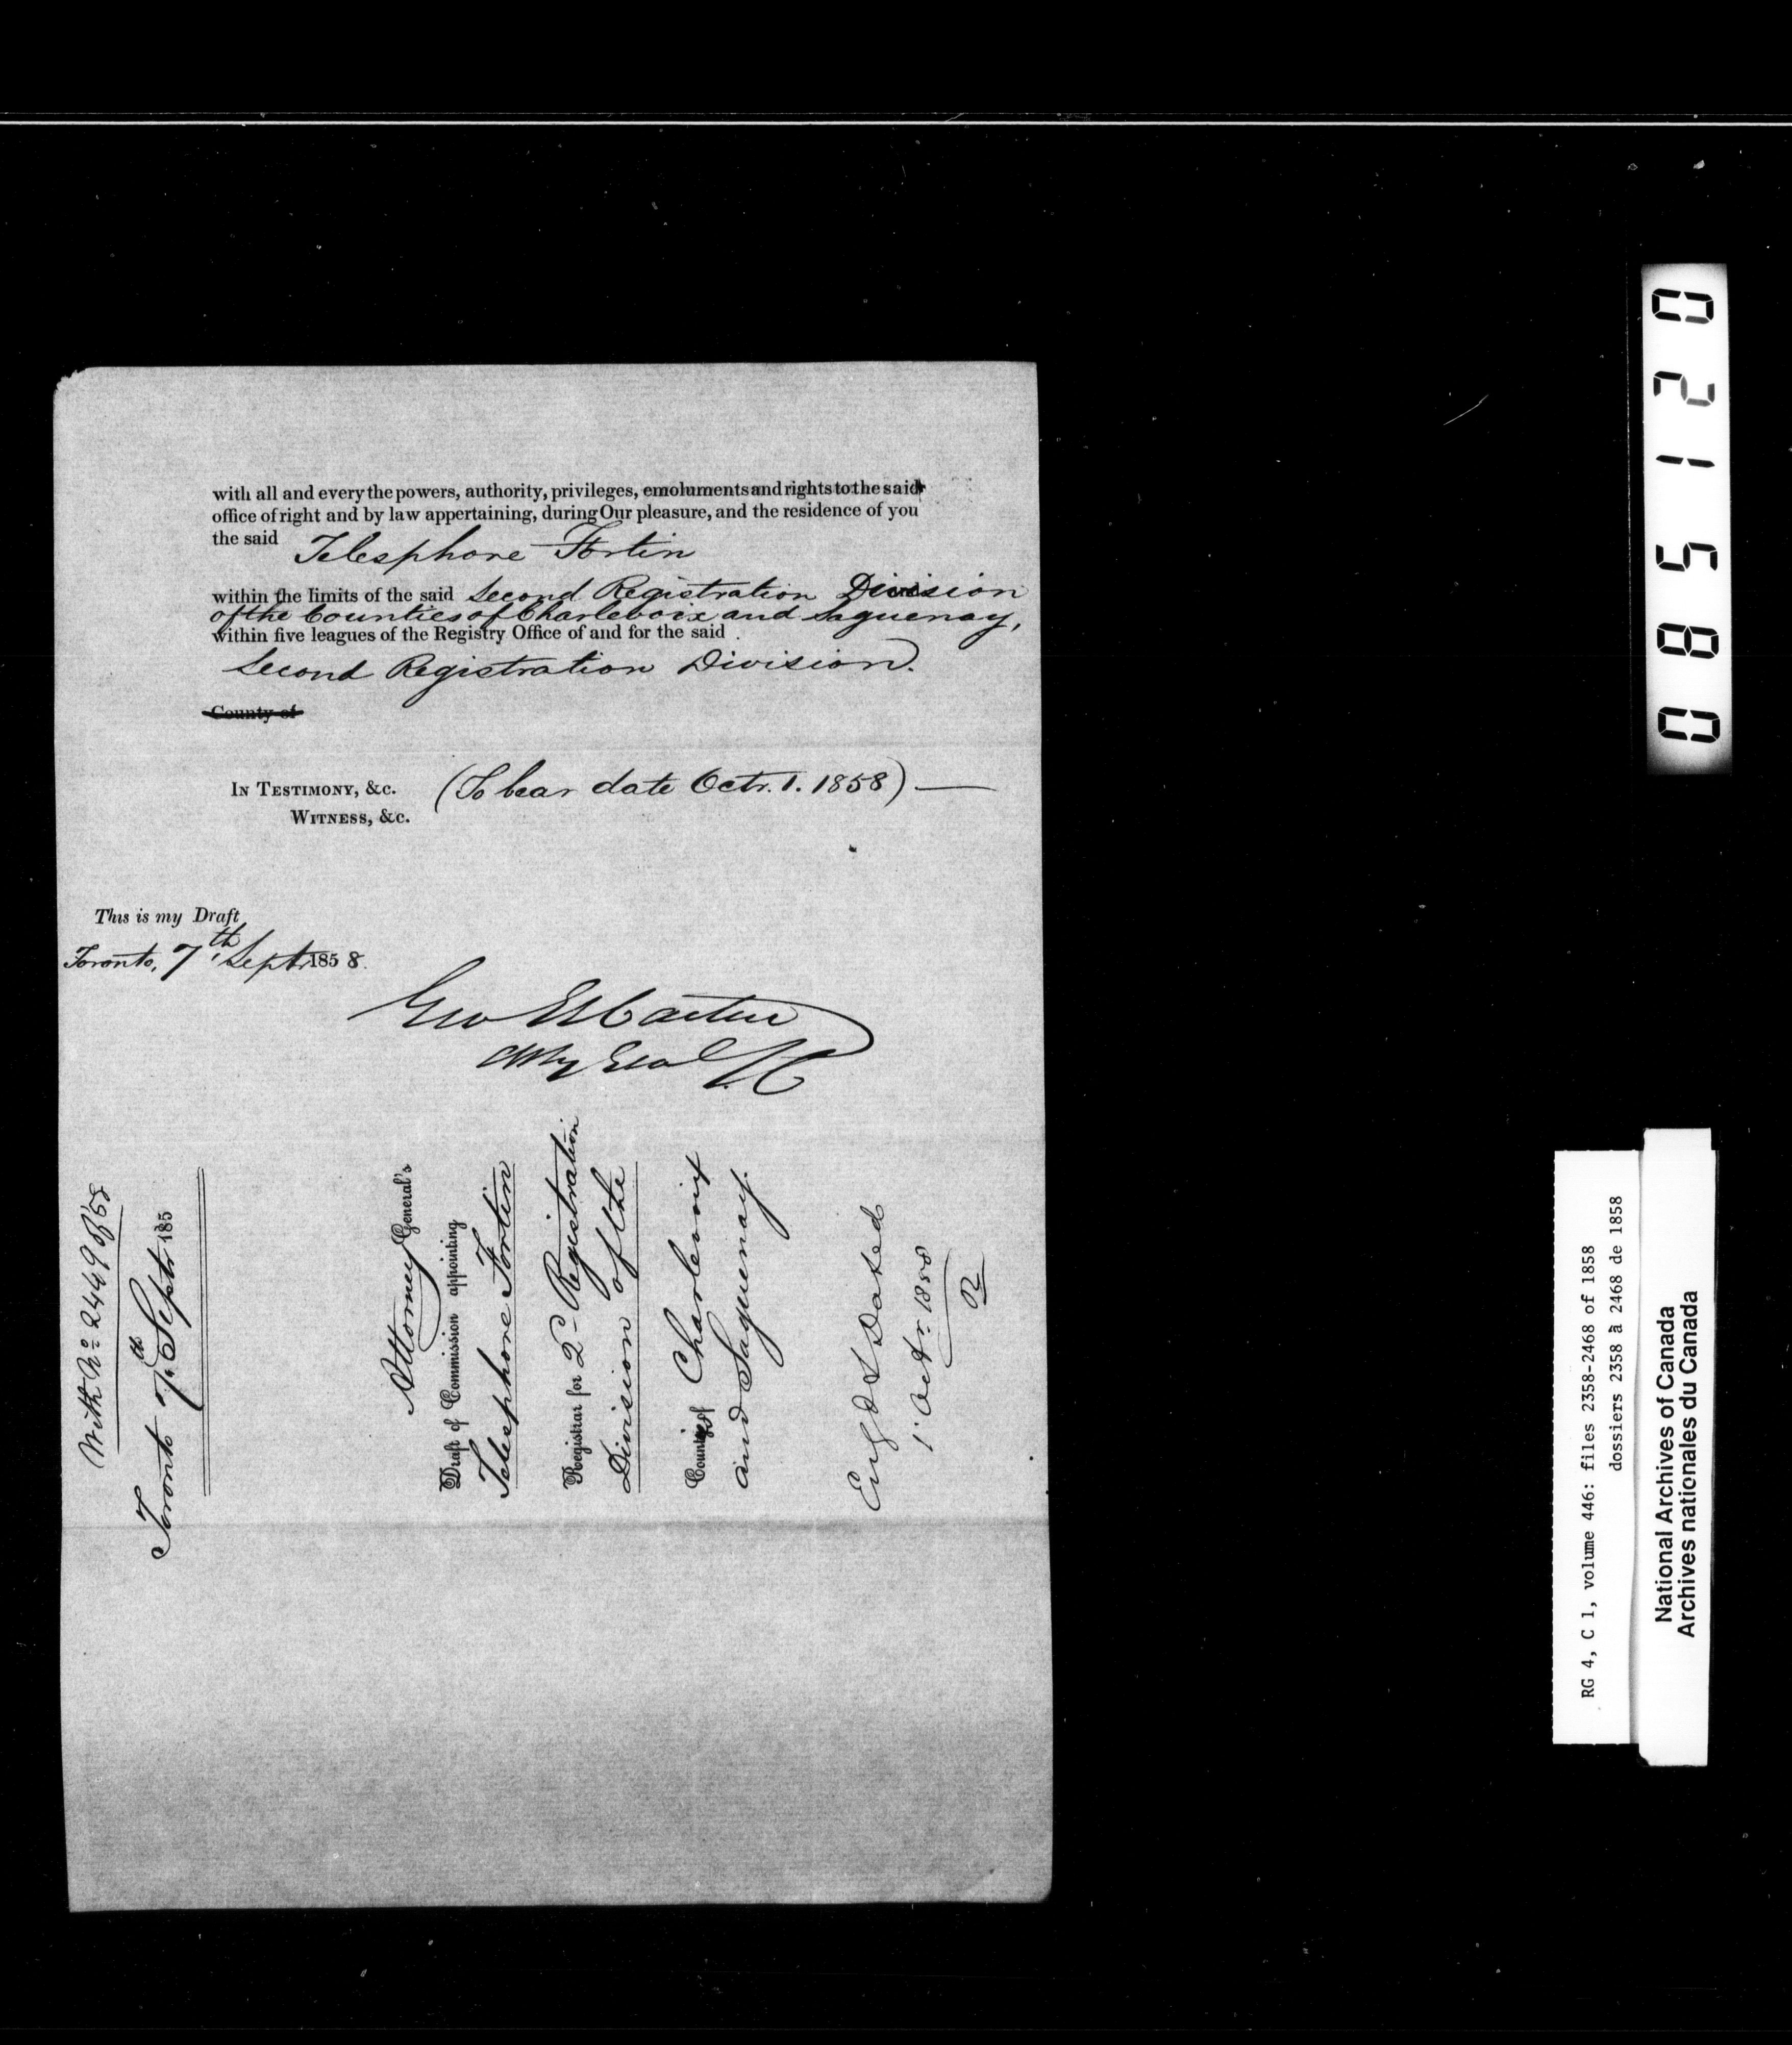 with all and every the powers, authority, privileges, emoluments and rights to the said
office of right and by law appertaining, during Our pleasure, and the residence of you
the said Telesphore Fortin
within the limits of the said Second Registration Division
of the Counties of Charlevoix and Saguenay,
within five leagues of the Registry Office of and for the said
Second Registration Division.
County of
In Testimony, &c. (To bear date Octr. 1. 1858)
Witness, &c.
This is my Draft
Toronto, 7th Septr. 1858.
Geo Et Cartier
Atty Genl LC
With No 2449 of 58
Toronto 7th Septr 185
Attorney General's
Draft of Commission appointing
Telesphore Fortin
Registrar for 2d Registration
Division of the
Counties of Charlevoix
and Saguenay.
Engd & Dated
1 Octr. 1858
085120
RG 4, C 1, volume 446: files 2358-2468 of 1858
dossiers 2358 à 2468 de 1858
National Archives of Canada
Archives nationales du Canada